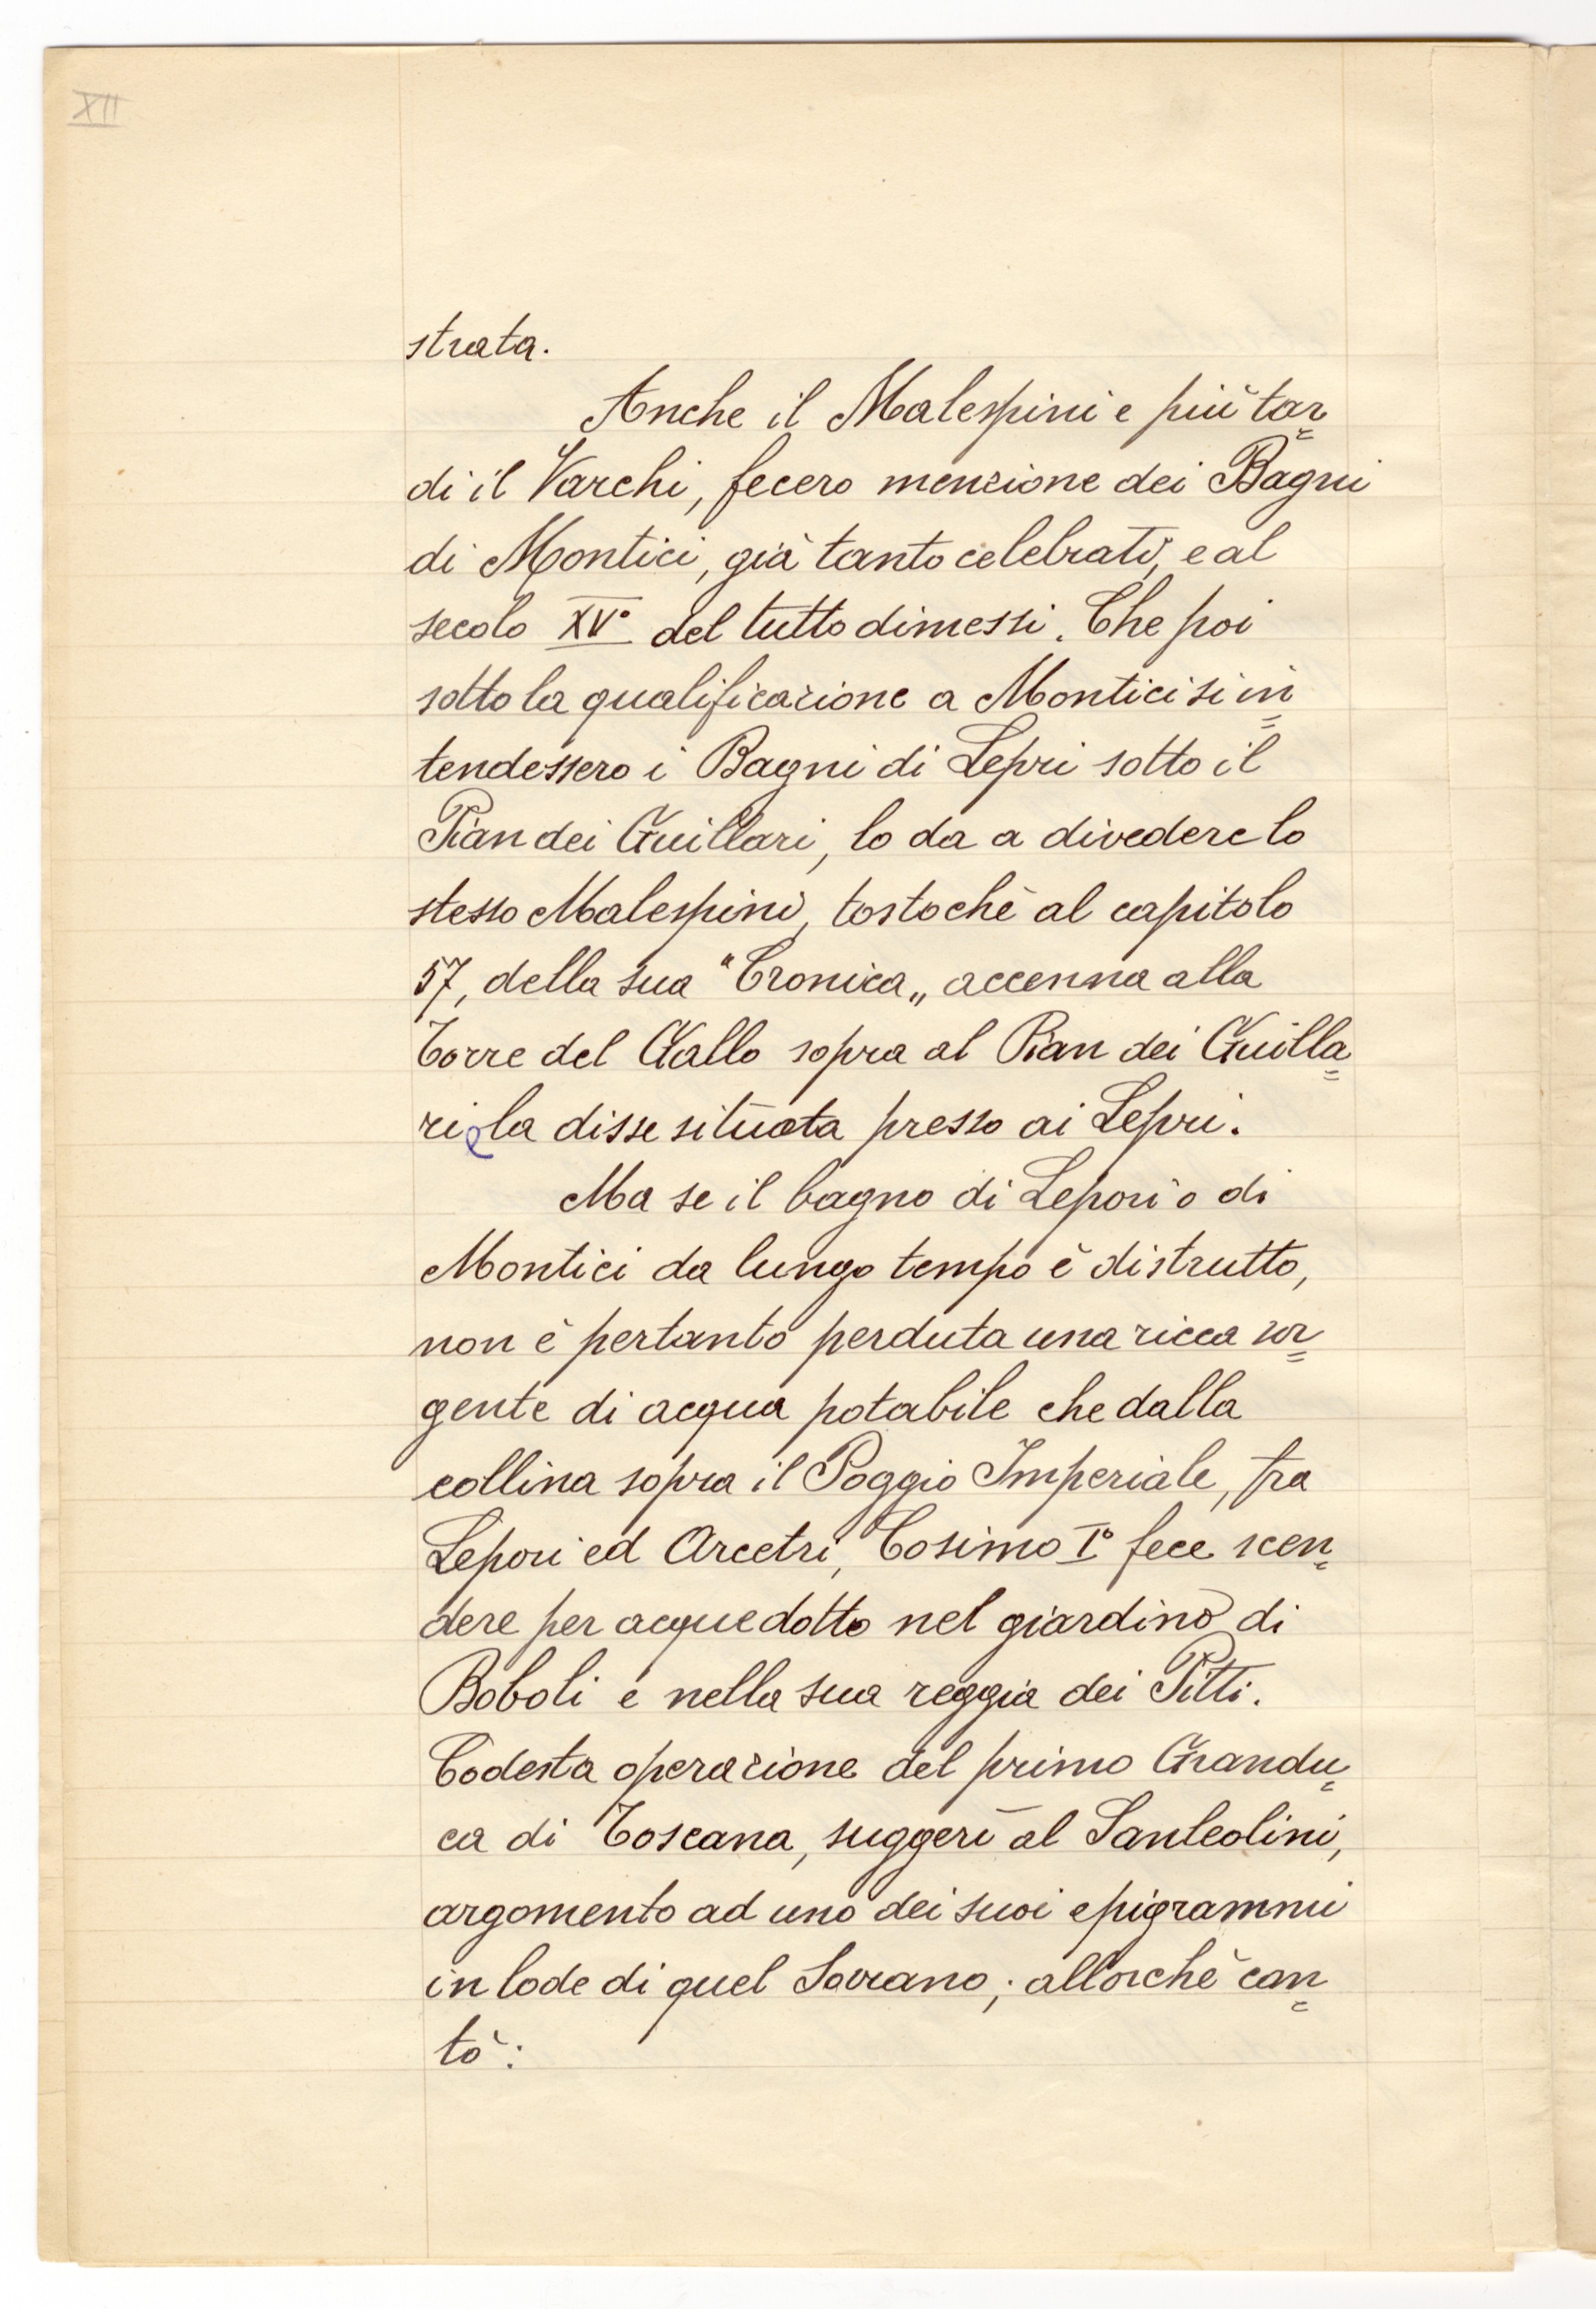 XII
strata.
Anche il Malespini e più tar=
di il Varchi, fecero menzione dei Bagni
di Montici, già tanto celebrati, e al
secolo XV° del tutto dimessi. Che poi
sotto la qualificazione a Montici si in=
tendessero i Bagni di Lepri sotto il
Pian dei Guillari, lo da a divedere lo
stesso Malespini, tostochè al capitolo
57, della sua "Cronica„ accenna alla
Torre del Gallo sopra al Pian dei Guilla=
ri e la disse situata presso ai Lepri.
Ma se il bagno di Lepori o di
Montici da lungo tempo è distrutto,
non è pertanto perduta una ricca sor=
gente di acqua potabile che dalla
collina sopra il Poggio Imperiale, fra
Lepori ed Arcetri, Cosimo I° fece scen=
dere per acquedotto nel giardino di
Boboli e nella sua reggia dei Pitti.
Codesta operazione del primo Grandu=
ca di Toscana, suggerì al Sanleolini,
argomento ad uno dei suoi epigrammi
in lode di quel Sovrano; allorchè can=
tò: